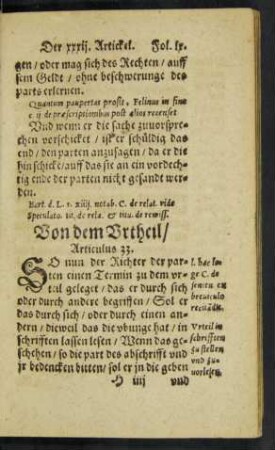 Der xxxij. Artickel. Fol. lx.
gen / oder mag sich des Rechten / auff
sein Geldt / ohne beschwerunge des
parts erlernen.
Quantum paupertas prosit, Felinus in fine
c. ij de præscriptionibus post alios recenset
Vnd wenn er die sache zuuorspre-
chen vorschicket / ist er schüldig das
end / den parten anzusagen / da er die
hin schicke / auff das sie an ein vordech-
tig ende der parten nicht gesandt wer-
den.
Bart. d. L. 1. xiiij. notab. C. de relat. vide
Speculato. in. de rela. & in u. de remiss.
Von dem Vrtheil /
Articulus 23.
SO nun der Richter der par-
ten einen Termin zu dem vr-
teil geleget / das er durch sich
oder durch andere begriffen / Sol er
das durch sich / oder durch einen an-
dern / dieweil das die vbunge hat / in
schrifften lassen lesen / Wenn das ge-
schehen / so die part des abschrifft vnd
jr bedencken bitten / sol er jn die geben
H iiij vnd
l. hac lo-
ge C. de
senten ex
breuiculo
recitādis.
Vrteil in
schrifften
zu stellen
vnd zu-
uorlesen.